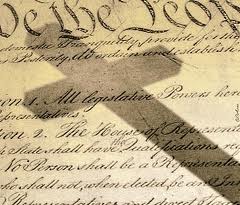 We the People
domestic Tranquility, provide for the
Posterity, do ordain and establish
ion 1. All legislative Powers here
presentatives.
ion 2. The House of Representa
State shall have the Qualifications requ
No Person shall be a Representa
who shall not, when elected, be an In
Representatives and direct Taxes